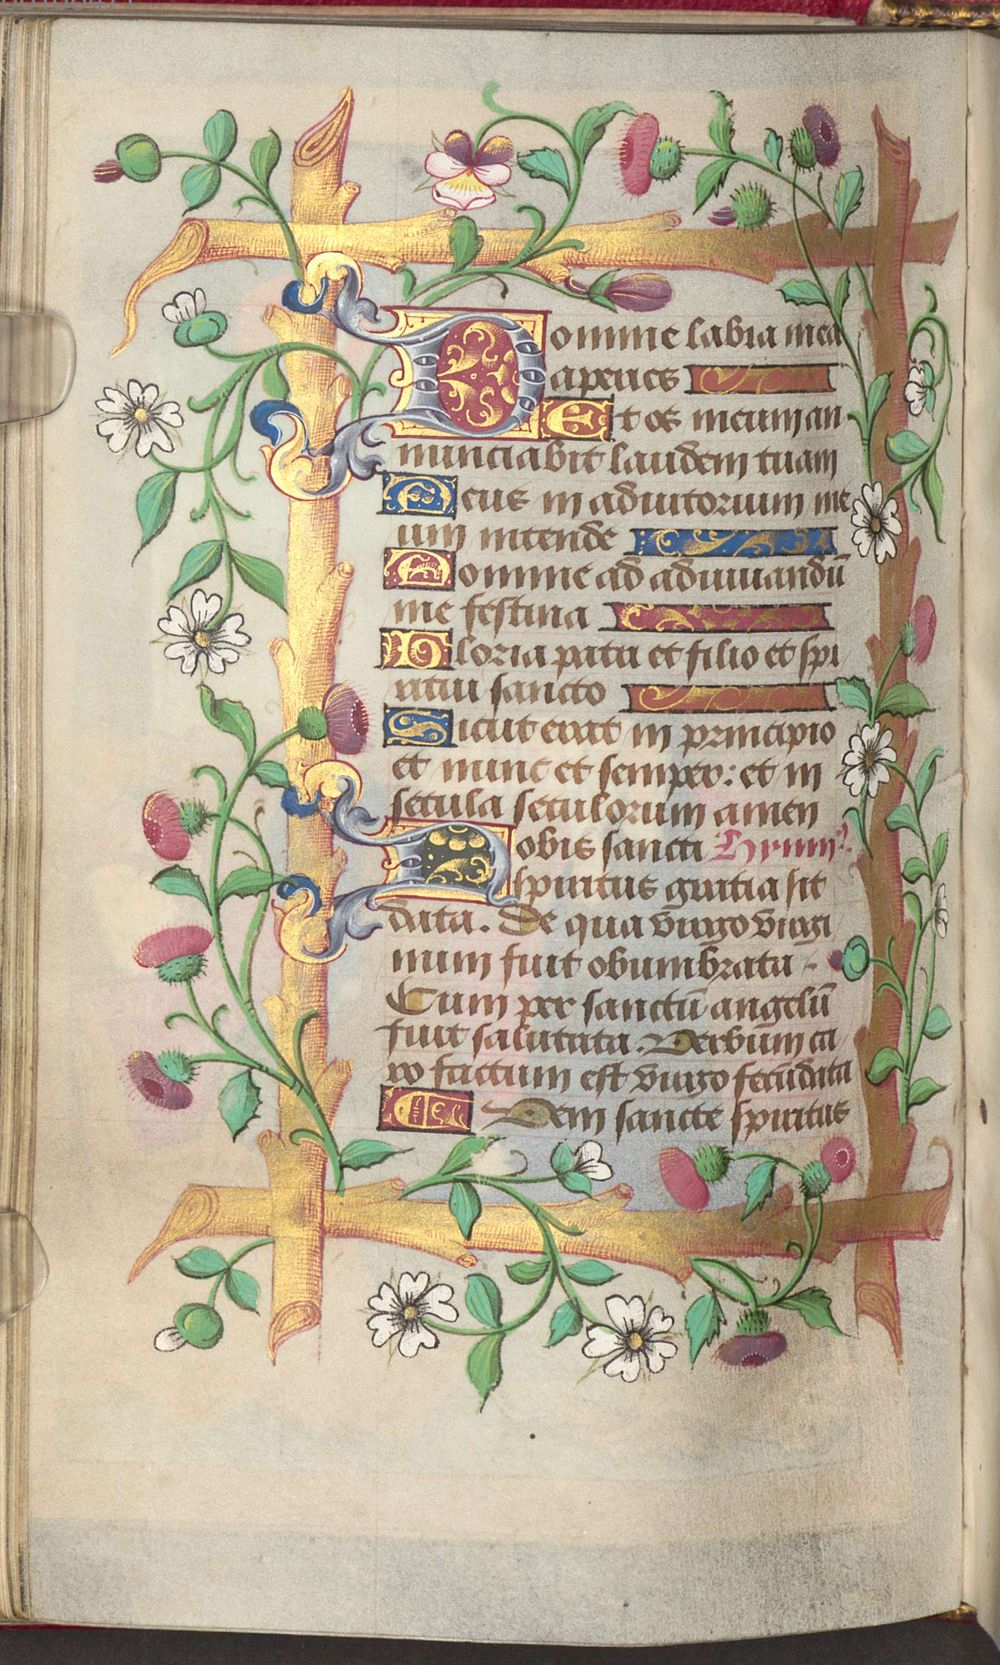 Domine labia mea
aperies
Et os meum an
nunciabit laudem tuam
Deus in adiutorium me
um intende
Domine ad adiuuandū
me festina
Gloria patri et filio et spi
ritui sancto
Sicut erat in principio
et nunc et semper: et in
secula seculorum amen
Nobis sancti Hymn⁹.
spiritus gratia sit
data. De qua virgo virgi
num fuit obumbrata
Cum per sanctū angelū
fuit salutata. Verbum ca
ro factum est virgo fecūdata
Veni sancte spiritus